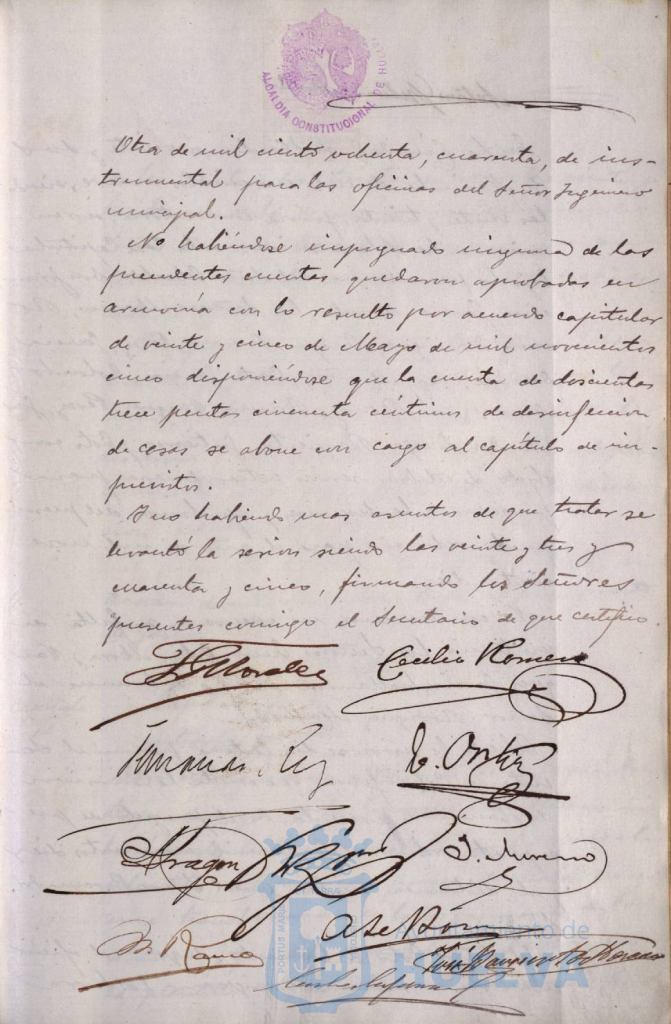 ALCALDIA CONSTITUCIONAL DE HUELVA
Otra de mil ciento ochenta, cuarenta, de ins-
trumental para las oficinas del Señor Ingeniero
municipal.
No habiéndose impugnado ninguna de las
precedentes cuentas quedaron aprobadas en
armonía con lo resuelto por acuerdo capitular
de veinte y cinco de Mayo de mil novecientos
cinco disponiéndose que la cuenta de doscientas
trece pesetas cincuenta céntimos de desinfeccion
de casas se abone con cargo al capítulo de im-
previstos.
Y no habiendo mas asuntos de que tratar se
levantó la sesion siendo las veinte y tres y
cuarenta y cinco, firmando los Señores
presentes conmigo el Secretario de que certifico.
Morales Cecilio Romero
Rey
Aragon J. Moreno
PORTUS MARIS
Ayuntamiento de
HUELVA